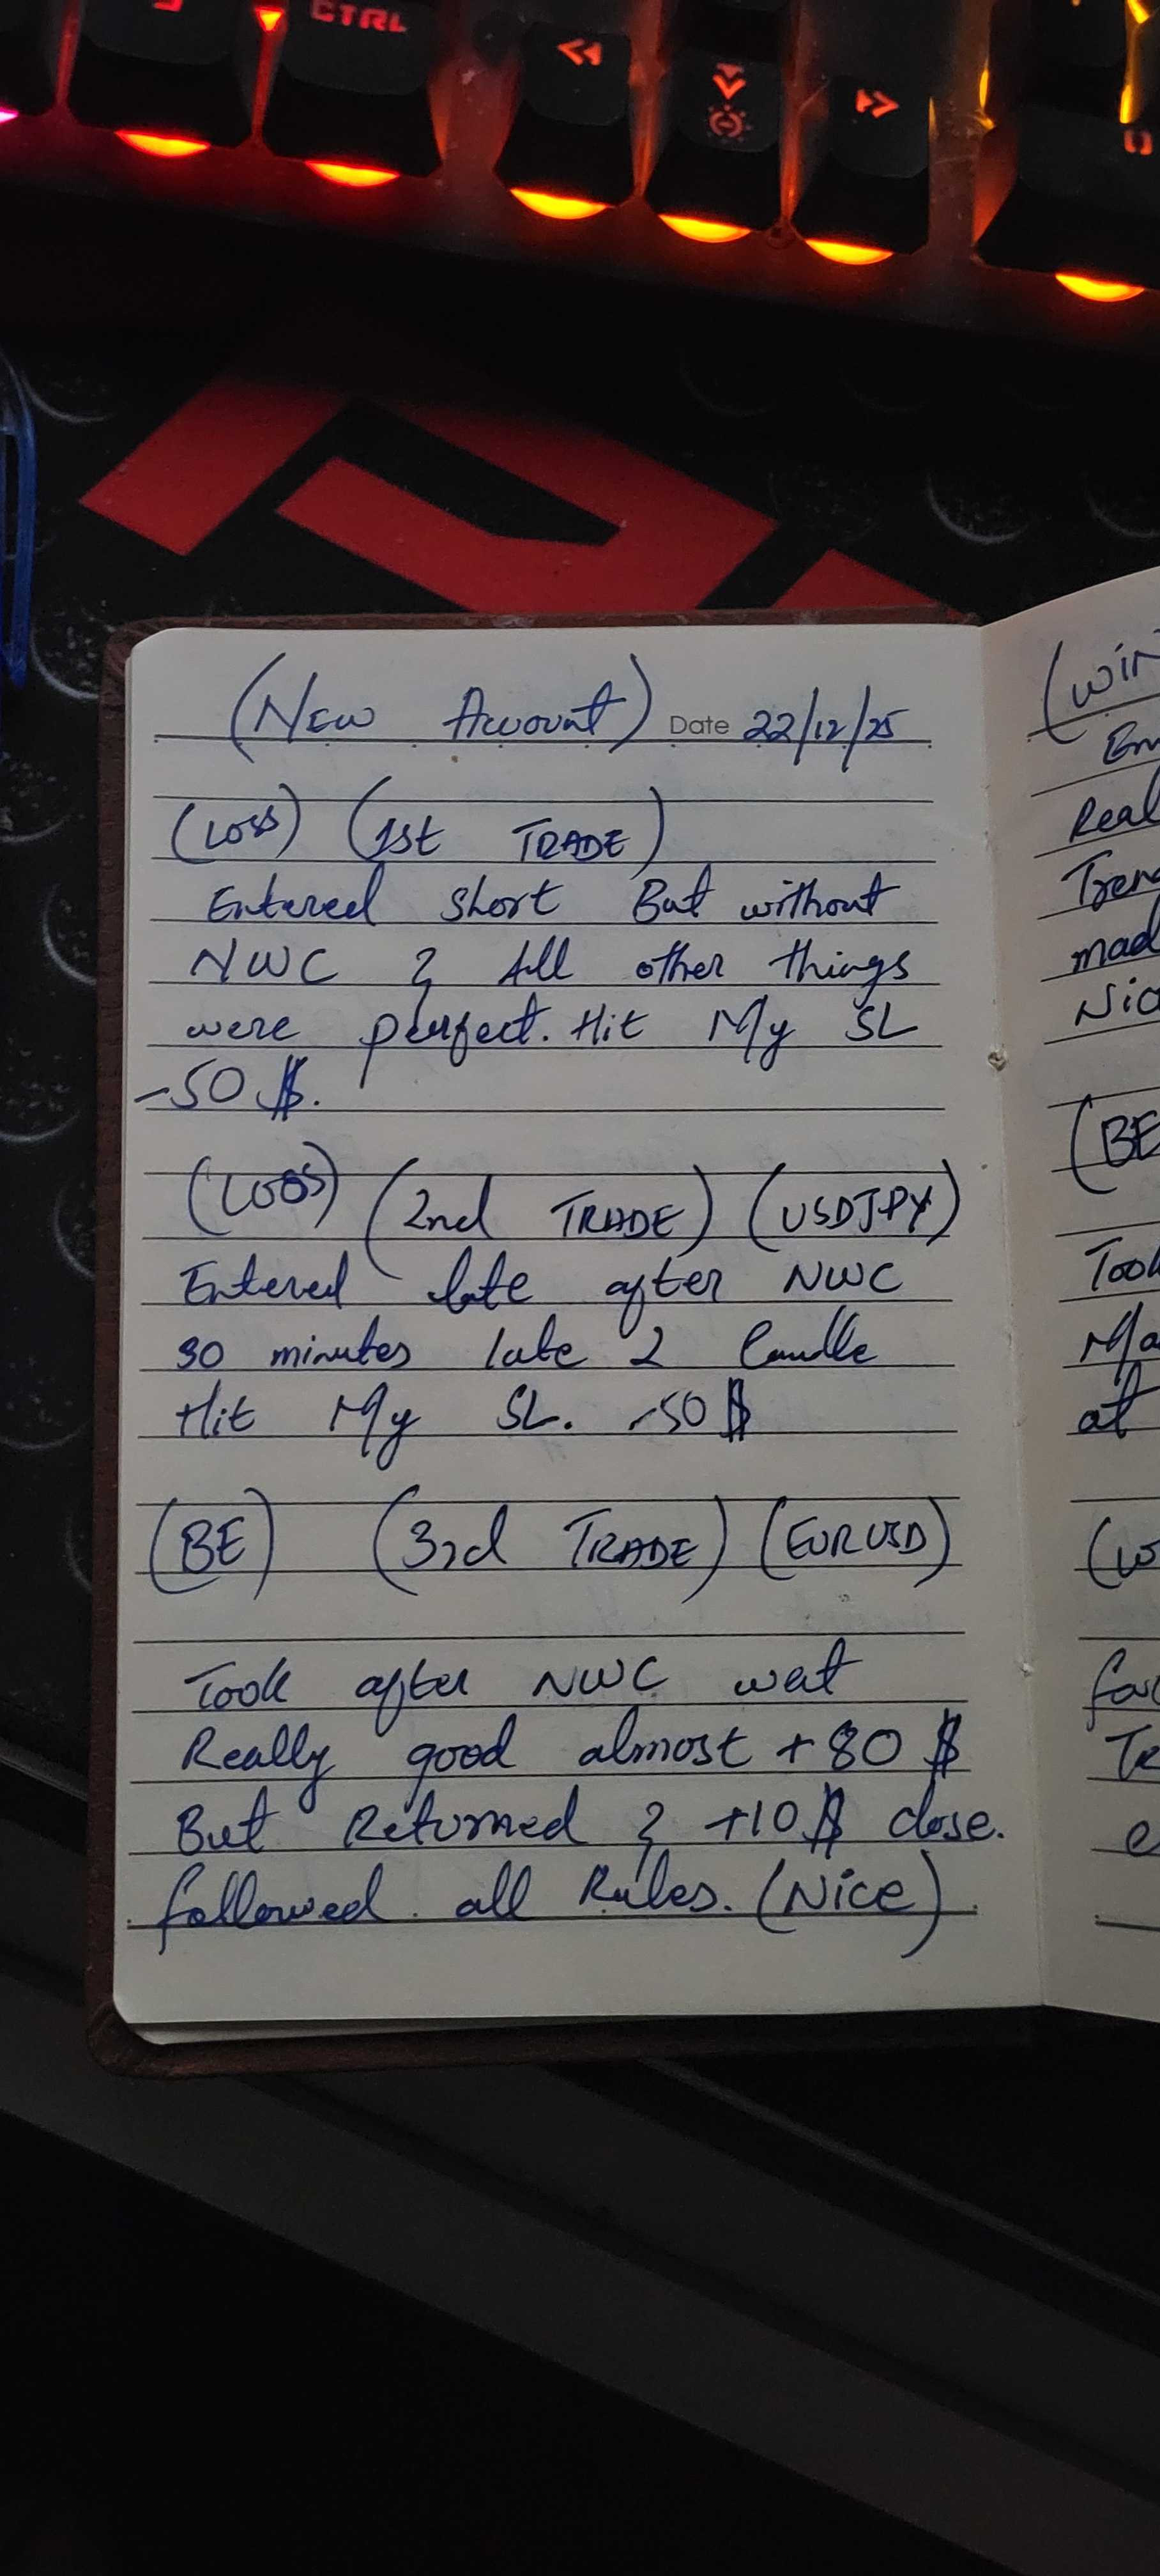 CTRL
(New Account) Date 22/12/25
(Loss) (1st TRADE)
Entered short But without
NWC & All other things
were perfect. Hit My SL
-50 $.
(Loss) (2nd TRADE) (USDJPY)
Entered late after NWC
30 minutes late & Candle
Hit My SL. -50 $
(BE) (3rd TRADE) (EURUSD)
Took after NWC went
Really good almost +80 $
But Returned & +10 $ close.
followed all Rules. (Nice)
(WIN
Em
Real
Tren
mad
Nic
(BE
Took
Ma
at
(w
for
TR
e